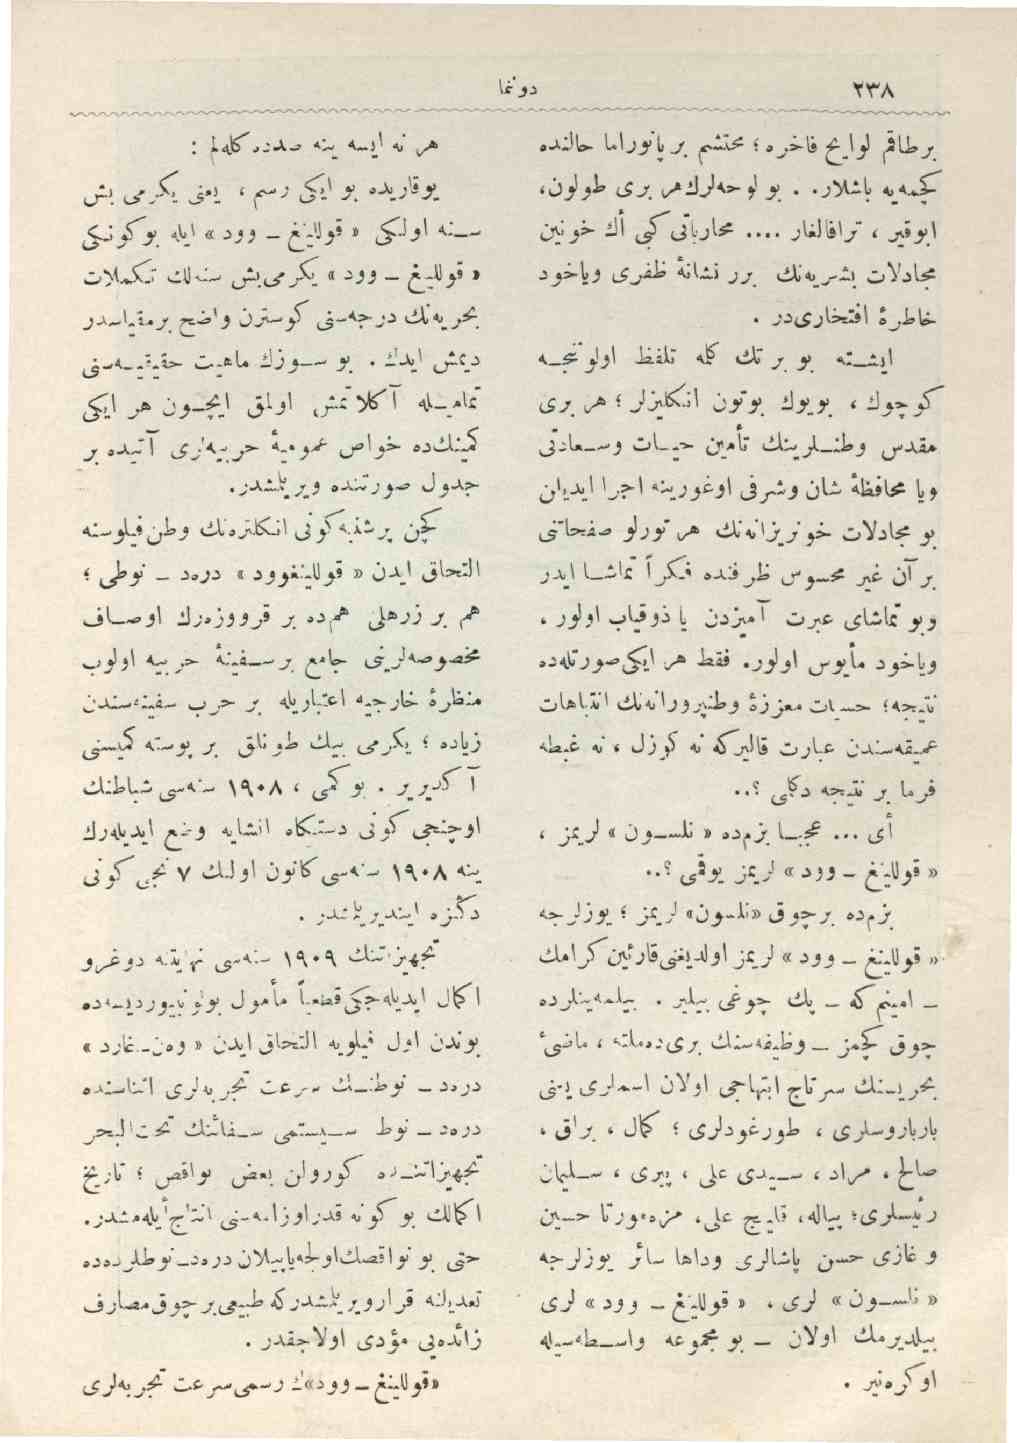 ٢٣٨
دوننما
برطاقم لوایح فاخره ؛ محتشم بر پانوراما حالنده
كچمه‌یه باشلار. . بو لوحه‌لرك هر بری طولون،
ابوقیر ، ترافالغار .... محارباتی كبی أك خونین
مجادلات بشریه‌نك برر نشانۀ ظفری ویاخود
خاطرۀ افتخاری‌در .
ایشـته بو بر تك كله تلفظ اولوننجـه
كوچوك ، بویوك بوتون انكلیزلر ؛ هر بری
مقدس وطنـلرینك تأمین حیـات وسـعادتی
ویا محافظۀ شان وشرفی اوغورینه اجرا ایدیلن
بو مجادلات خونریزانه‌نك هر تورلو صفحاتنی
بر آن غیر محسوس ظرفنده فكراً تماشـا ایدر
وبو تماشای عبرت آمیزدن یا ذوقیاب اولور ،
ویاخود مأیوس اولور. فقط هر ایكی صورتله‌ده
نتیجه؛ حسیات معززۀ وطنپرورانه‌نك انتباهات
عمیقه‌سندن عبارت قالیركه نه كوزل ، نه غبطه
فرما بر نتیجه دكلی ؟..
أی ... عجبـا بزم‌ده « نلسـون » لریمز ،
« قوللینغ ـ وود » لریمز یوقمی ؟..
بزم‌ده برچوق «نلسون» لریمز ؛ یوزلرجه
« قوللینغ ـ وود » لریمز اولدیغنی قارئین كرامك
ـ امینم كه ـ پك چوغی بیلیر . بیلمه‌ینلرده
چوق كچمز ـ وظیفه‌سنك بری ده‌ملته ، ماضیٔ
بحریسنك سرتاج ابتهاجی اولان اسملری یعنی
بارباروسلری ، طورغودلری ؛ كمال ، براق ،
صالح ، مراد ، سـیدی علی ، پیری ، سـلیمان
رئیسلری؛ پیاله، قلیج علی، مزه‌مورتا حسین
و غازی حسن پاشالری وداها سائر یوزلرجه
« نلسـون » لری ، « قوللینغ ـ وود » لری
بیلدیرمك اولان ـ بو مجموعه واسـطه‌سیله
اوكره‌نیر .
هر نه ایسه ینه صدده كله‌لم :
یوقاریده بو ایكی رسم ، یعنی یكرمی بش
سـنه اولكی « قوللینغ ـ وود » ایله بو كونكی
« قوللینغ ـ وود » یكرمی‌بش سنه‌لك تكملات
بحریه‌نك درجه‌سنی كوسترن واضح برمقیاسدر
دیمش ایدك . بو سـوزك ماهیت حقیقیـه‌سنی
تمامیـله آكلاتمش اولمق ایچـون هر ایكی
كمینك‌ده خواص عمومیۀ حربیه‌لری آتیده بر
جدول صورتنده ویریلمشدر.
كچن پرشنبه كونی انكلتره‌نك وطن فیلوسنه
التحاق ایدن « قوللینغوود » دره‌د ـ نوطی ؛
هم بر زرهلی هم‌ده بر قرووزه‌رك اوصـاف
مخصوصه‌لرینی جامع برسـفینۀ حربیه اولوب
منظرۀ خارجیه اعتباریله بر حرب سفینه‌سندن
زیاده ؛ یكرمی بیك طونلق بر پوسته كمیسنی
آكدیریر . بو كمی ، ١٩٠٨ سنه‌سی شباطنك
اوچنجی كونی دستكاه انشایه وضع ایدیله‌رك
ینه ١٩٠٨ سنه‌سی كانون اولك ٧ نجی كونی
دكیزه ایندیریلمشدر .
تجهیزاتنك ١٩٠٩ سنه‌سی نهایتنه دوغرو
اكمال ایدیله‌جكی قطعیاً مأمول بولونیوردیسـه‌ده
بوندن اول فیلویه التحاق ایدن « وه‌ن ـ غارد »
دره‌د ـ نوطنـك سرعت تجربه‌لری اثناسنده
دره‌د ـ نوط سـیستمی سـفائنك تحت‌البحر
تجهیزاتنـده كورولن بعض نواقص ؛ تاریخ
اكمالك بو كونه قدر اوزامه‌سنی انتاج أیله‌مشدر.
حتی بو نواقصك اولجه‌یاپیلان دره‌د ـ نوطلرده‌ده
تعدیلنه قرار ویریلمشدركه طبیعی برچوق مصارف
زائده‌یی مؤدی اولاجقدر .
«قوللینغ ـ وود»ك رسمی سرعت تجربه‌لری